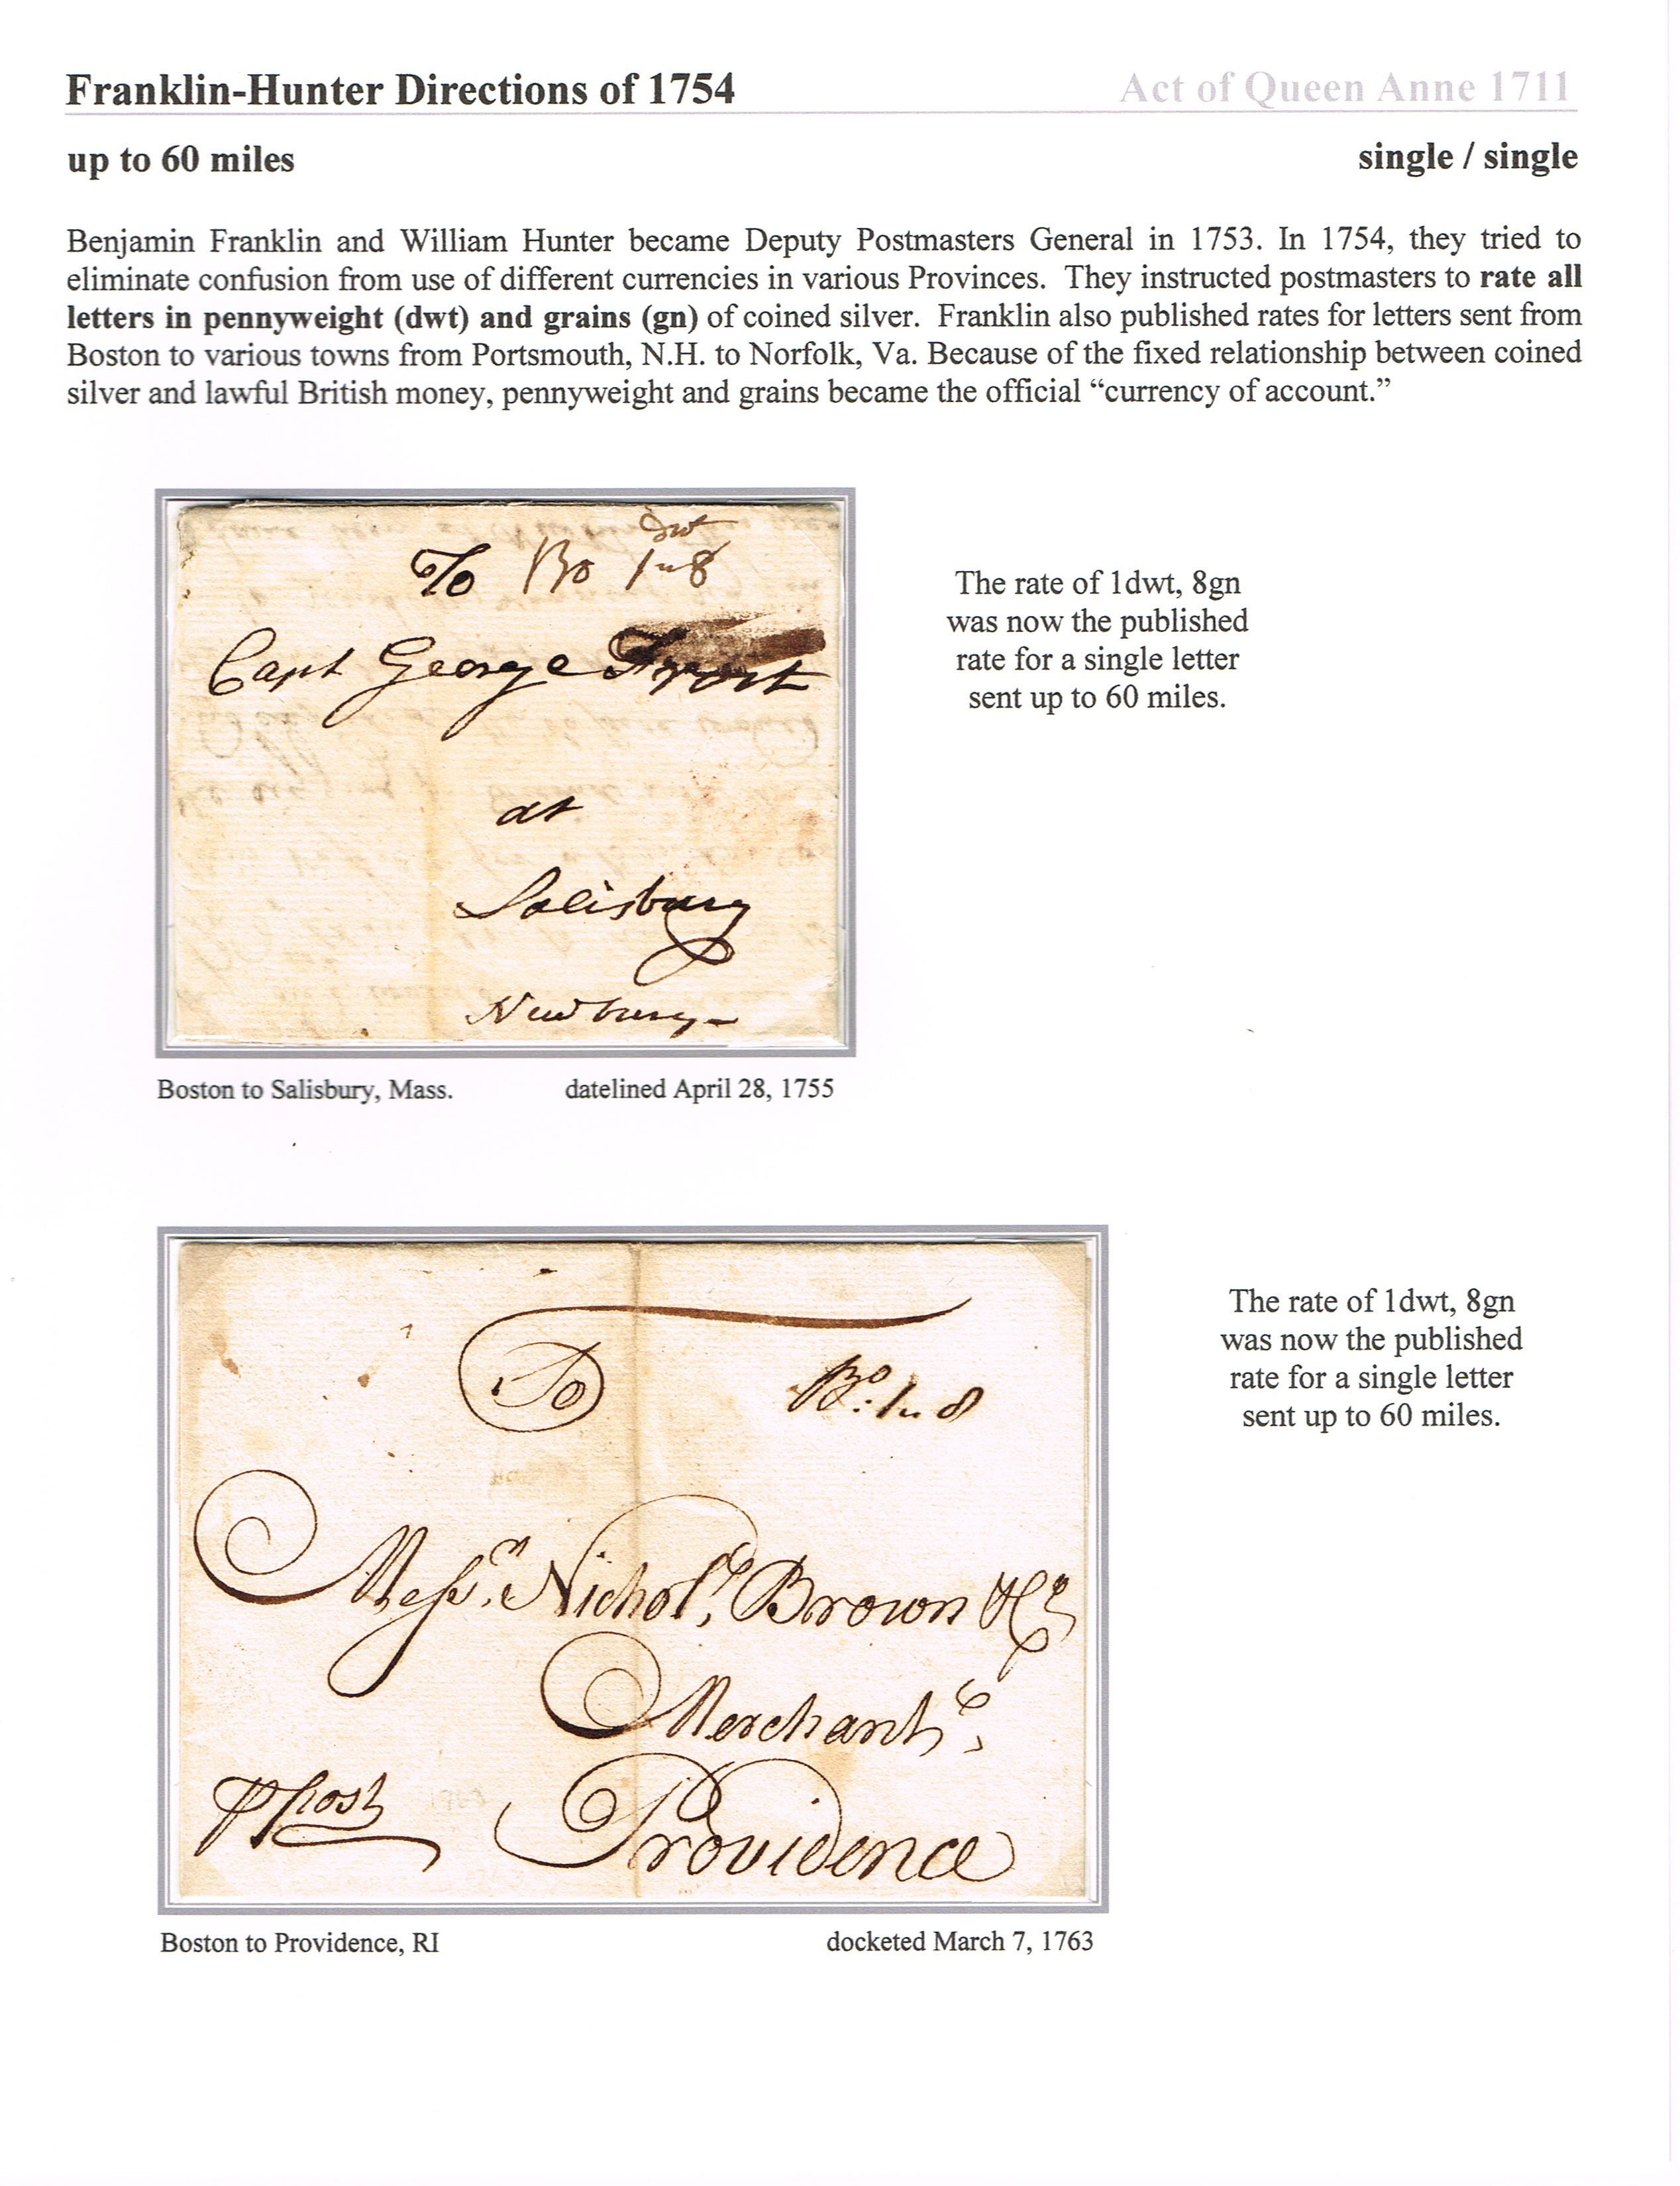 Franklin-Hunter Directions of 1754
Act of Queen Anne 1711
up to 60 miles
single / single
Benjamin Franklin and William Hunter became Deputy Postmasters General in 1753. In 1754, they tried to
eliminate confusion from use of different currencies in various Provinces. They instructed postmasters to rate all
letters in pennyweight (dwt) and grains (gn) of coined silver. Franklin also published rates for letters sent from
Boston to various towns from Portsmouth, N.H. to Norfolk, Va. Because of the fixed relationship between coined
silver and lawful British money, pennyweight and grains became the official “currency of account.”
dwt
To Bo 1"8
Capt George Frost
at
Salisbury
Newbury
The rate of 1dwt, 8gn
was now the published
rate for a single letter
sent up to 60 miles.
Boston to Salisbury, Mass.
datelined April 28, 1755
To
Bo: 1" 8
Messrs. Nichols. Brown & Co
Merchants,
P post
Providence
The rate of 1dwt, 8gn
was now the published
rate for a single letter
sent up to 60 miles.
Boston to Providence, RI
docketed March 7, 1763